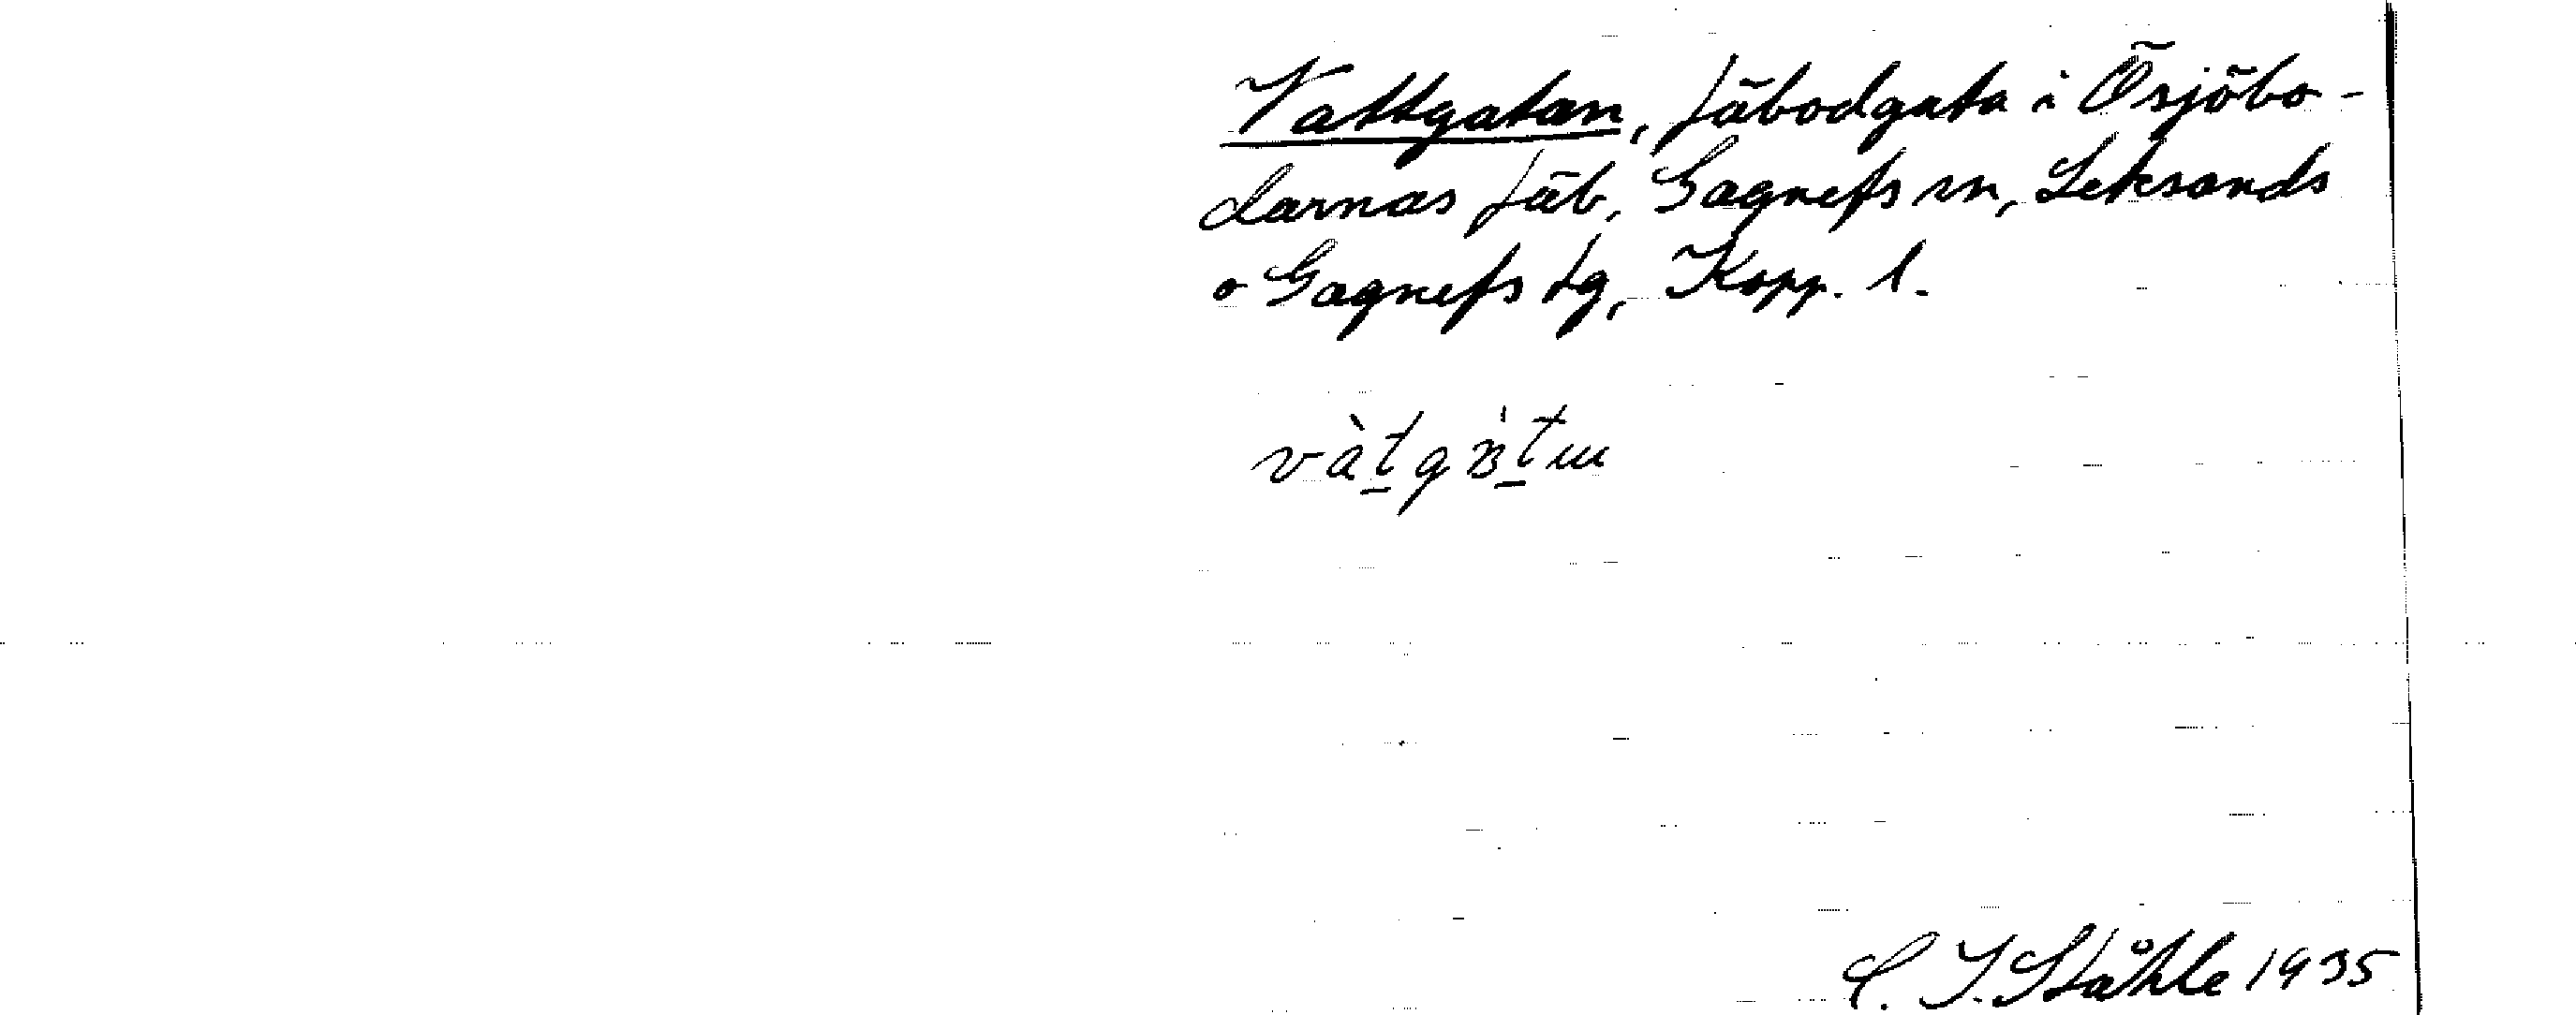 Vattgatan, fäbodgata i Ösjöbo-
darnas fäb, Gagnefs sn, Leksands
o Gagnefs tg, Kopp. l.
C. I. Ståhle 1935